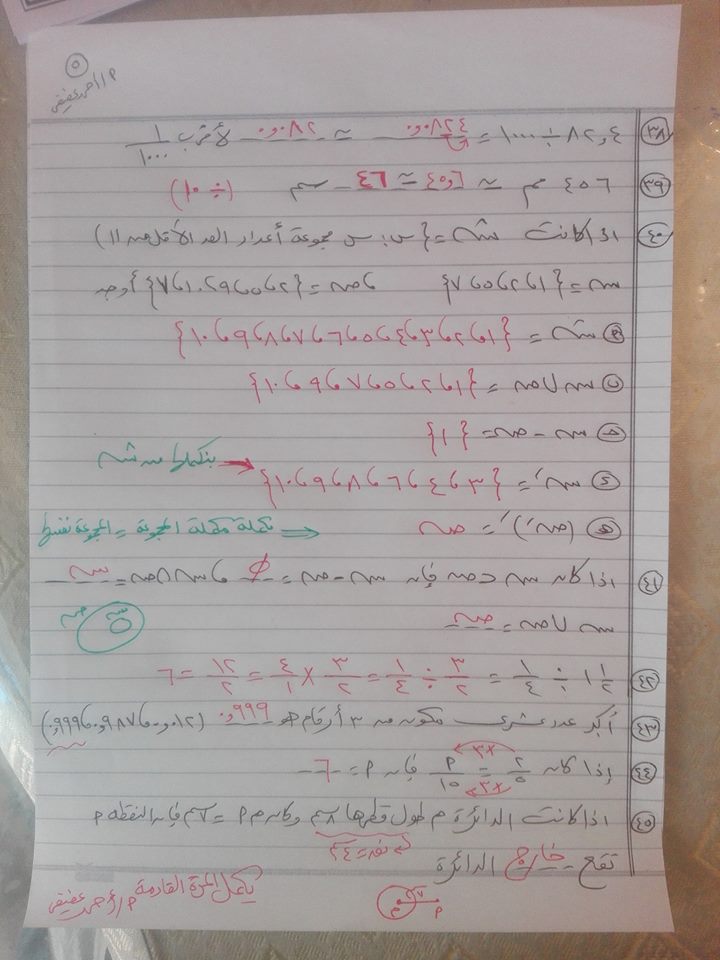 ٥
م/أحمد عفيفى
٣٨ ٤,٢٨ ÷ ١٠٠٠ = ٠,٠٠٤٢٨ ≈ لأقرب ١/١٠٠٠
٣٩ ٤٥٦ مم ≈ ٤٥,٦ ≈ ٤٦ سم (÷ ١٠)
٤٠ اذا كانت ش = {س : س مجموعة أعداد العد الأقل من ١١}
س = {١، ٢، ٥، ٧} ، ص = {٢، ٥، ٩، ١٠، ٦، ٧} أوجد
٩ ش = {١، ٢، ٣، ٤، ٥، ٦، ٧، ٨، ٩، ١٠}
ب س ∪ ص = {١، ٢، ٥، ٧، ٦، ٩، ١٠}
ح س - ص = {١}
د سَ = {٣، ٤، ٦، ٨، ٩، ١٠} ← بنكملها من ش
هـ (صَ)َ = ص ⇐ تكملة مكملة المجموعة = المجموعة نفسها
٤١ اذا كان س ⊂ ص فإن س - ص = ∅ ، س ∩ ص = س
س ∪ ص = ص
٤٢ ١ ١/٢ ÷ ١/٤ = ٣/٢ ÷ ١/٤ = ٣/٢ × ٤/١ = ١٢/٢ = ٦
٤٣ أكبر عدد عشرى مكون من ٣ أرقام هو ٠,٩٩٩ (٠,٠١٢ ، ٠,٩٨٧ ، ٠,٩٩٩)
٤٤ إذا كان ٢/٥ = م/١٥ فإن م = ٦
×٣
×٣
٤٥ اذا كانت الدائرة م طول قطرها ٨سم وكان م م = ٧سم فإن النقطة م
نق = ٤سم
تقع خارج الدائرة
٧
م
م
يكمل المرة القادمة م/أحمد عفيفى